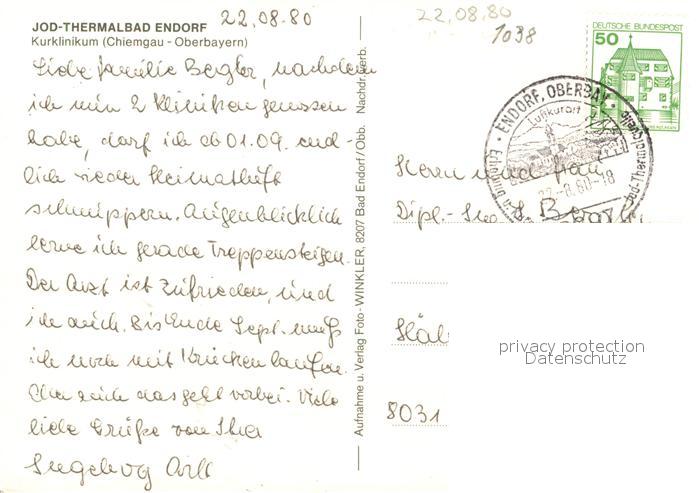 JOD-THERMALBAD ENDORF
Kurklinikum (Chiemgau - Oberbayern)
22.08.80
Liebe Familie Bergler, nachdem
ich nun 2 Kliniken genossen
habe, darf ich ab 01.09. end-
lich wieder Heimatluft
schnuppern. Augenblicklich
lerne ich gerade Treppensteigen.
Der Arzt ist zufrieden, und
ich auch. Bis Ende Sept. muß
ich noch mit Krücken laufen.
Aber auch das geht vorbei. Viele
liebe Grüße von Ihrer
Ingeborg
Aufnahme u. Verlag Foto - WINKLER, 8207 Bad Endorf/Obb. Nachdr. verb.
22.08.80
1038
DEUTSCHE BUNDESPOST
50
ENDORF, OBERBAY
Luftkurort
22.-8.80-18
Herrn und Frau
Dipl.-Ing. Bergler
8031
privacy protection
Datenschutz